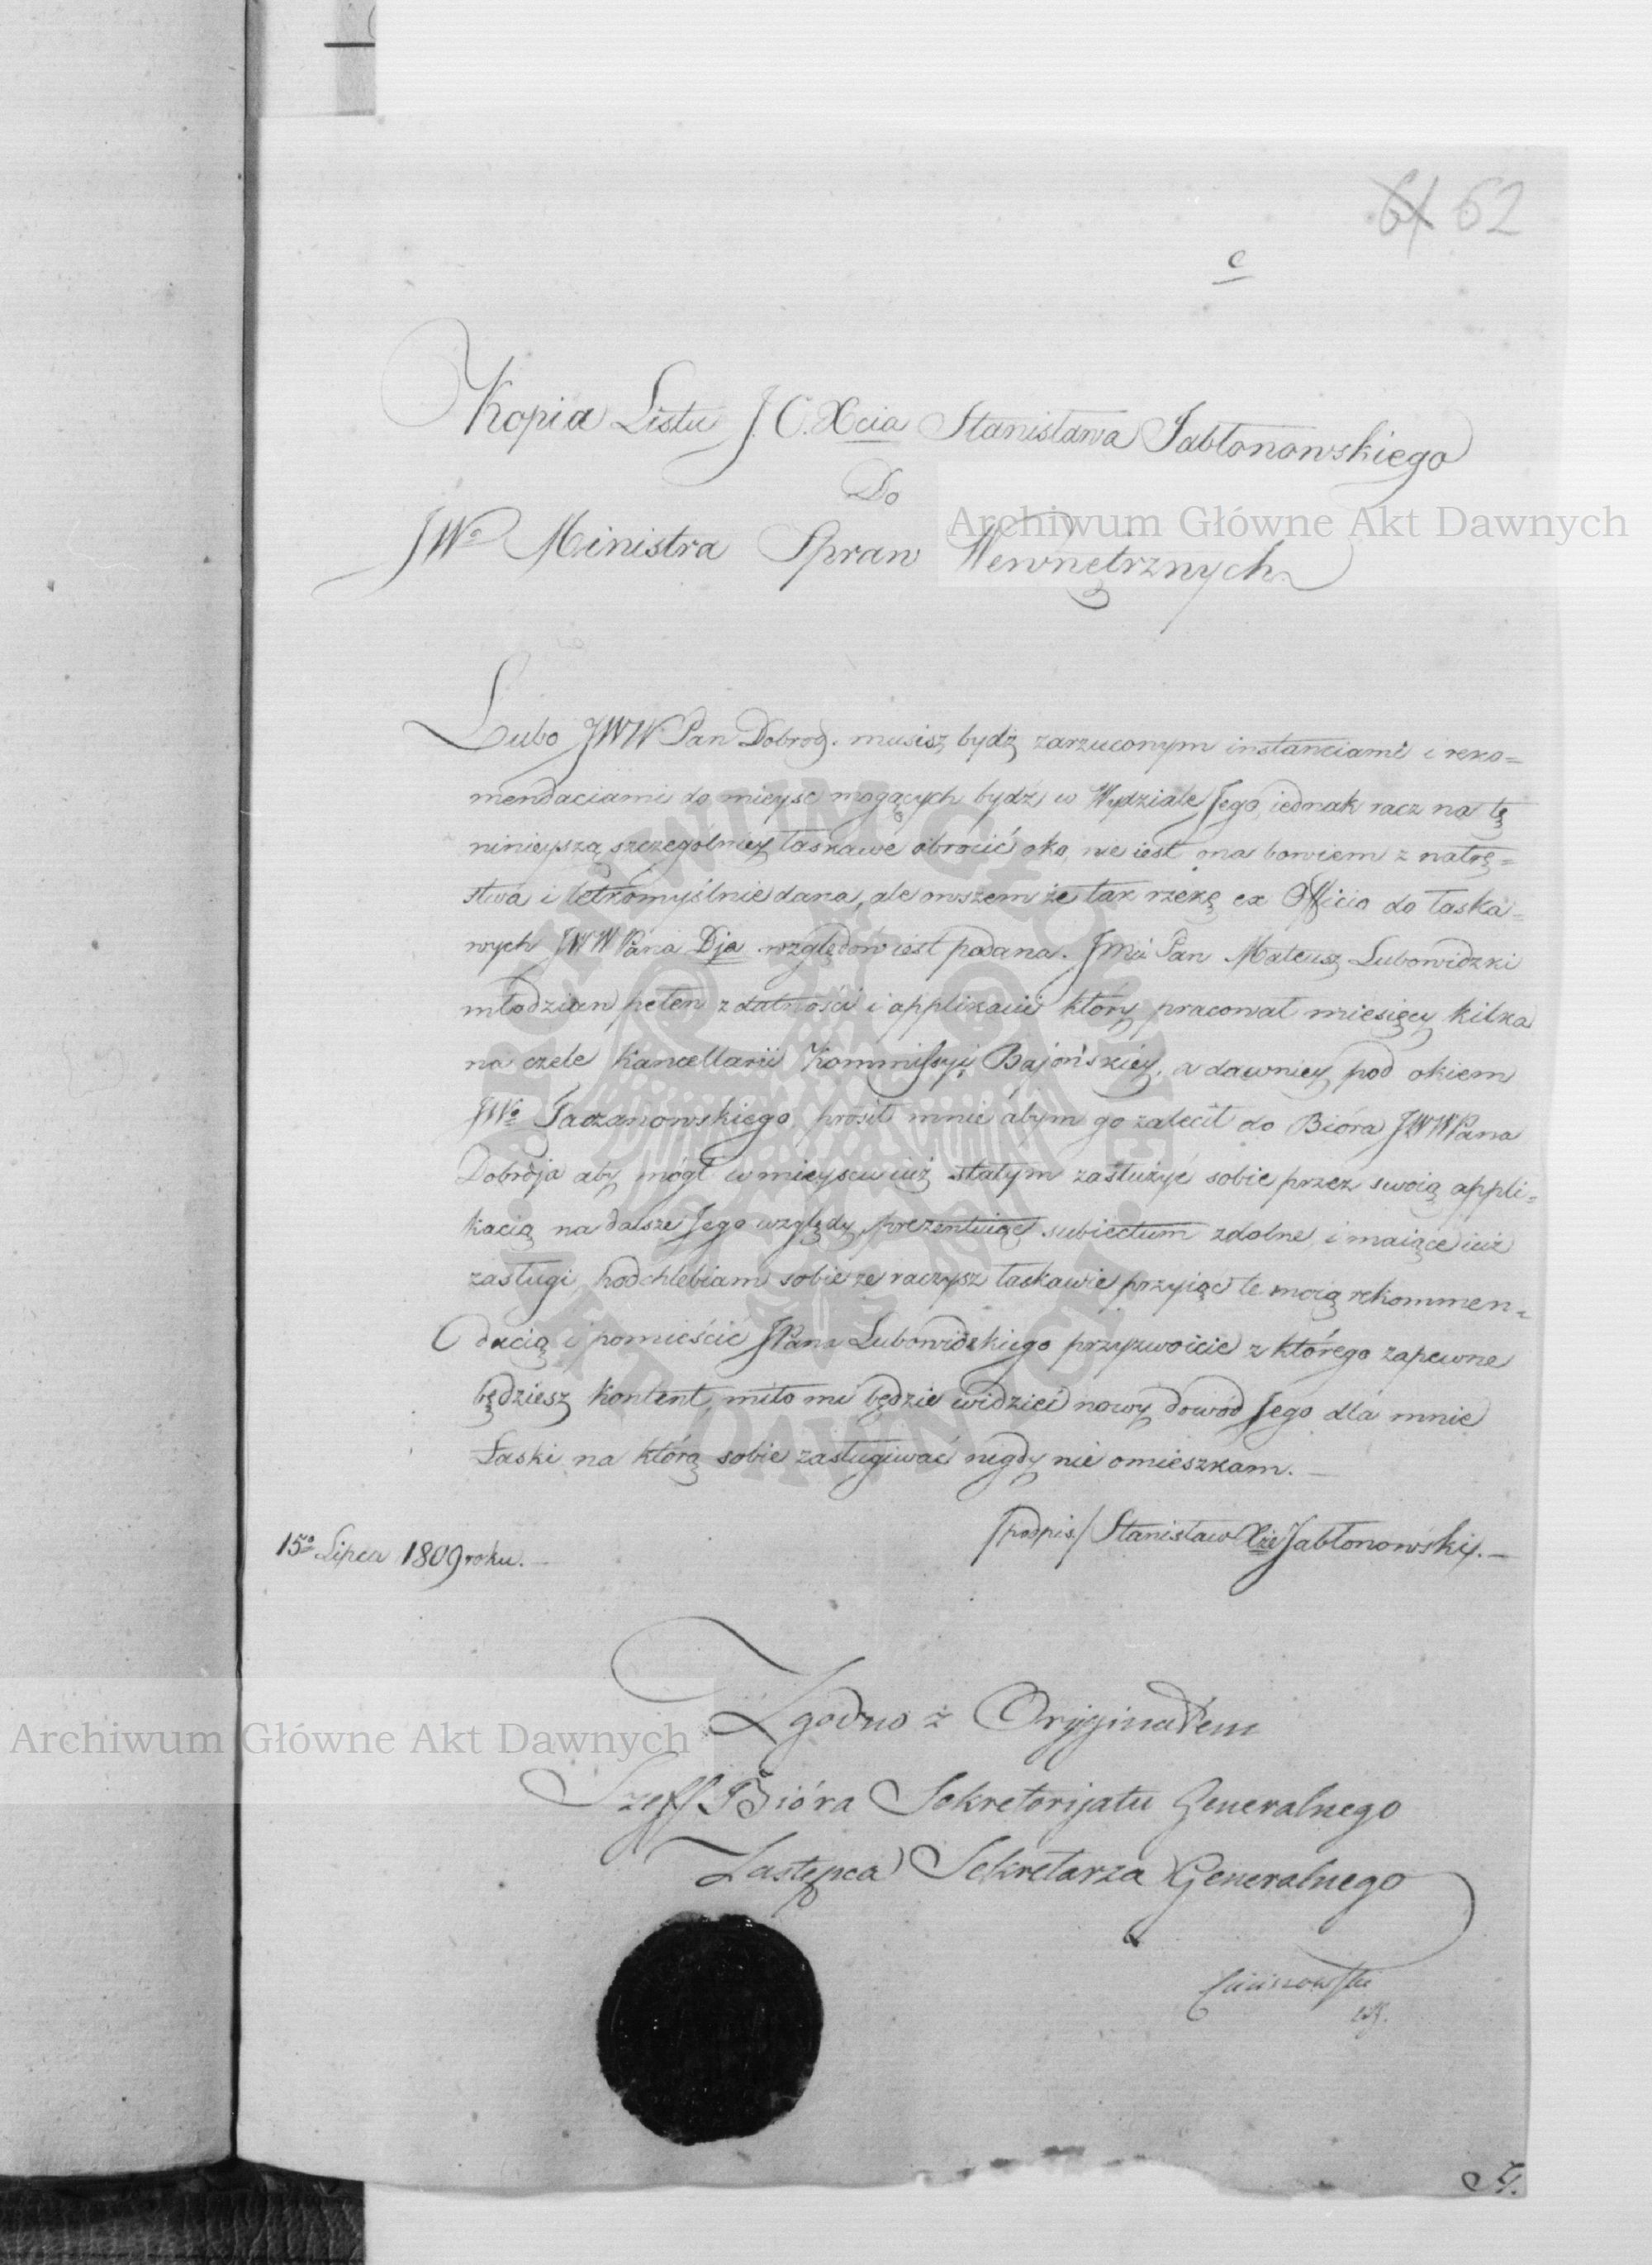 61 62
c
Kopia Listu J. O. Xcia Stanisława Jabłonowskiego
Do
Archiwum Główne Akt Dawnych
JWo Ministra Spraw Wewnętrznych
Lubo JWW Pan Dobrod. musisz bydź zarzuconym instanciami i reko=
mendaciami do mieysc mogących bydź w Wydziale Jego, iednak racz na tę
ninieyszą szczególniey łaskawe obrocić oko, nie iest ona bowiem z natrę=
stwa i letkomyślnie dana, ale owszem że tak rzekę ex Officio do łaska=
wych JWWPana Dja względow iest podana. Jmć Pan Mateusz Lubowidzki
młodzian pełen zdatności i applikacii który pracował miesięcy kilka
na czele Kancellarii Kommissyi Bajońskiey, a dawniey pod okiem
JWo Taczanowskiego, prosił mnie abym go zalecił do Bióra JWWPana
Dobrdja aby mógł w mieyscu iuż stałym zasłużyć sobie przez swoią appli=
kacią na dalsze Jego względy, prezentuiąc subiectum zdolne i maiące iuż
zasługi, podchlebiam sobie że raczysz łaskawie przyiąć te moią rekommen=
dacią i pomieścić JPana Lubowidzkiego przyzwoicie z którego zapewne
będziesz kontent, miło mi będzie widzieć nowy dowód Jego dla mnie
Łaski na którą sobie zasługiwać nigdy nie omieszkam. —
/podpis/ Stanisław Xże Jabłonowski. —
15o Lipca 1809 roku. —
Zgodno z Oryginałem
Archiwum Główne Akt Dawnych
Szeff Bióra Sekretorijatu Generalnego
Zastępca Sekretarza Generalnego